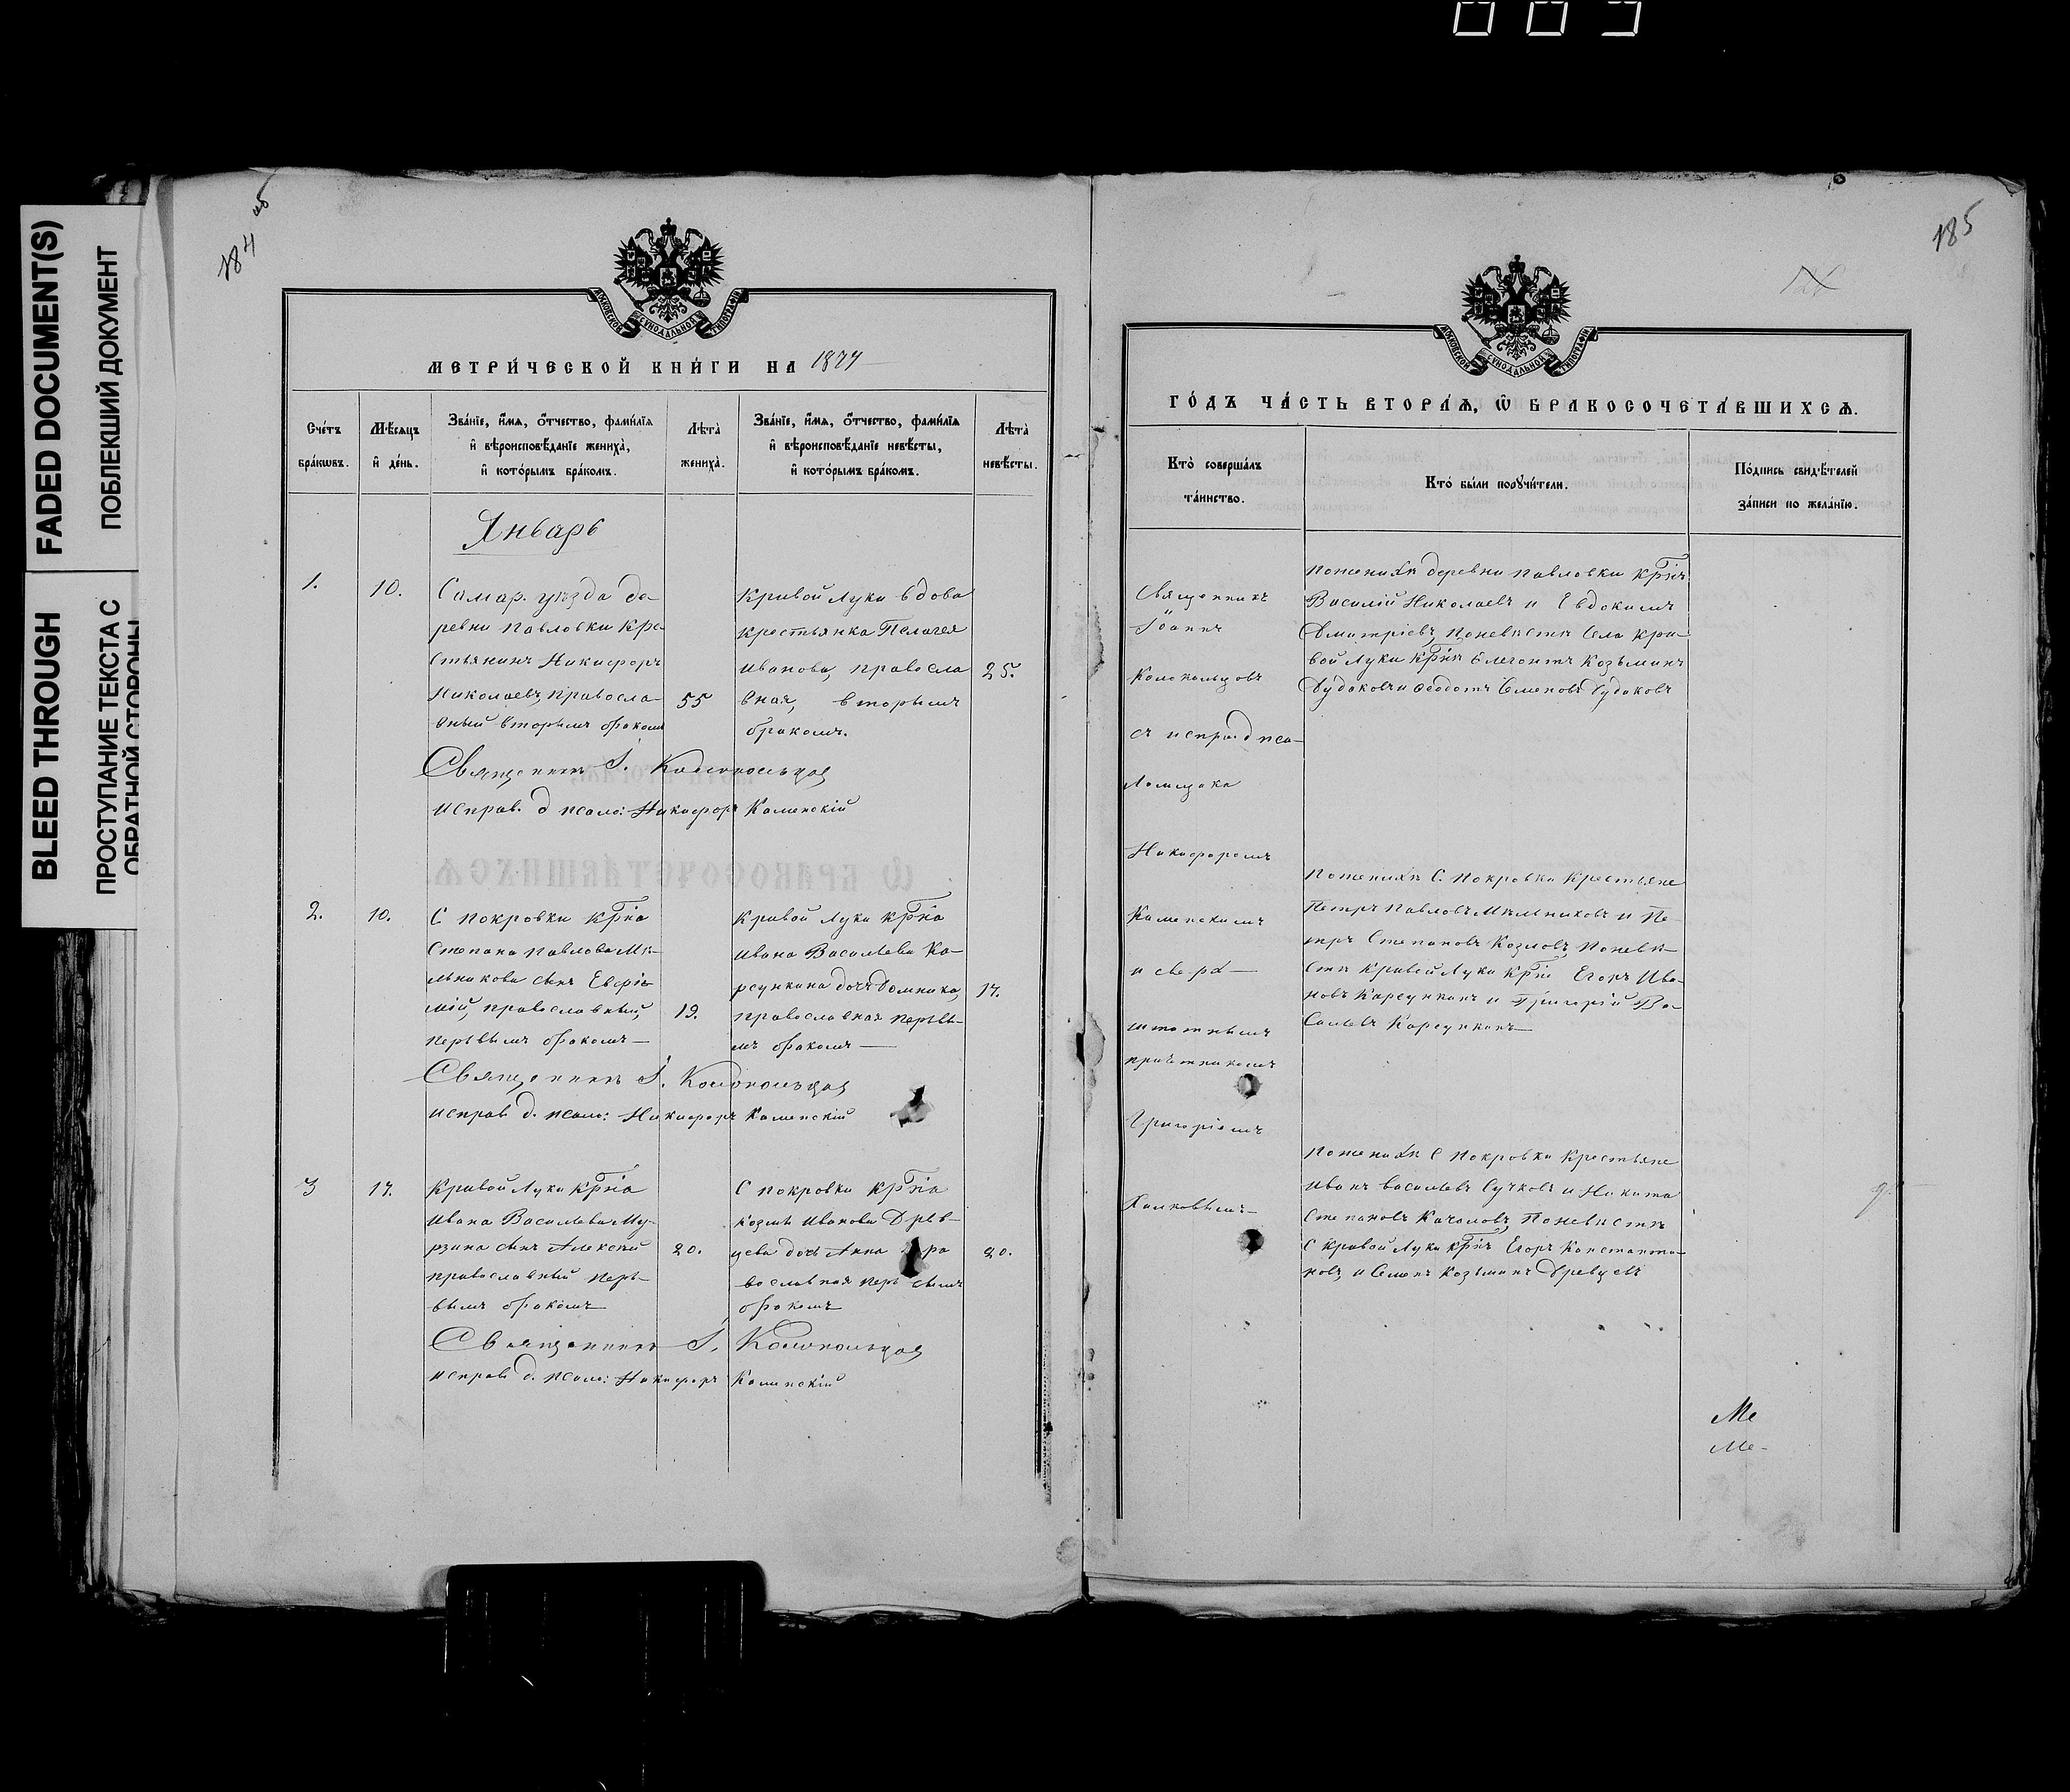 009
FADED DOCUMENT(S)
ПОБЛЕКШИЙ ДОКУМЕНТ
BLEED THROUGH
ПРОСТУПАНИЕ ТЕКСТА С
ОБРАТНОЙ СТОРОНЫ
184 об
МОСКОВСКОЙ СѴНОДАЛЬНОЙ ТИПОГРАФІИ
МЕТРИ́ЧЕСКОЙ КНИ́ГИ НА 1877
Сче́тъ бра́кѡвъ.
Мѣ́сяцъ и де́нь.
Зва́нїе, и́мѧ, о́тчество, фами́лїѧ
и вѣроисповѣ́данїе жениха̀,
и кото́рымъ бра́комъ.
Лѣта̀ жениха̀.
Зва́нїе, и́мѧ, о́тчество, фами́лїѧ
и вѣроисповѣ́данїе невѣ́сты,
и кото́рымъ бра́комъ.
Лѣта̀ невѣ́сты.
Январь
1.
10.
Самар. уѣзда де-
ревни Павловки Кре-
стьянинъ Никифоръ
Николаевъ, правосла-
вный вторымъ бракомъ
55
Кривой Луки вдова
крестьянка Пелагея
Иванова, правосла
вная, вторымъ
бракомъ.
25.
Священникъ І. Колокольцов
Исправ. д псало: Никифоръ Каменскій
2.
10.
С Покровки крна
Степана Павлова Мѣ-
льникова сынъ Евфи-
мій, православный,
первымъ бракомъ
19.
Кривой Луки крна
Ивана Васильева Ка-
рсункина дочь Домника,
православная первы-
мъ бракомъ
17.
Священникъ І. Колокольцов
Исправ д. псало: Никифоръ Каменскій
3
17.
Кривой Луки крна
Ивана Васильева Му-
рзина сынъ Алексей
православный пер-
вымъ бракомъ
20.
С Покровки крна
Козмы Иванова Древ-
цева дочь Анна пра
вославная первымъ
бракомъ
20.
Священникъ І. Колокольцов
Исправ д. псало: Никифоръ Каменскій
185
МОСКОВСКОЙ СѴНОДАЛЬНОЙ ТИПОГРАФІИ
ГО́ДЪ ЧА́СТЬ ВТОРА́Ѧ, Ѡ БРАКОСОЧЕТА́ВШИХСѦ.
Кто̀ соверша́лъ
та́инство.
Кто̀ бы́ли порꙋчи́тели.
По́дпись свидѣ́телей
за́писи по жела́нїю.
Священникъ
Іоаннъ
Колокольцовъ
съ исправ д пса-
ломщика
Никифоромъ
Каменскимъ
и сверх-
штатнымъ
причетникомъ
Григоріемъ
Ханковымъ
По женихѣ деревни Павловки крне
Василій Николаевъ и Евдокимъ
Дмитріевъ, по невѣстѣ Села Кри-
вой Луки крне Козьминъ
Дудаковъ и Федотъ Семеновъ Дудаковъ
По женихѣ С. Покровки крестьяне
Петръ Павловъ Мѣльниковъ и Пе-
тръ Степановъ Козловъ, по невѣ-
стѣ Кривой Луки крне Егоръ Ива-
новъ Карсункинъ и Григорій Ва-
сильевъ Карсункинъ
По женихѣ С Покровки крестьяне
Иванъ Васильевъ Сучковъ и Никита
Степановъ Качаловъ, По невѣстѣ
С Кривой Луки крне Егоръ Константи-
новъ, и Семенъ Козьминъ Древцевъ
Ме
Ме-